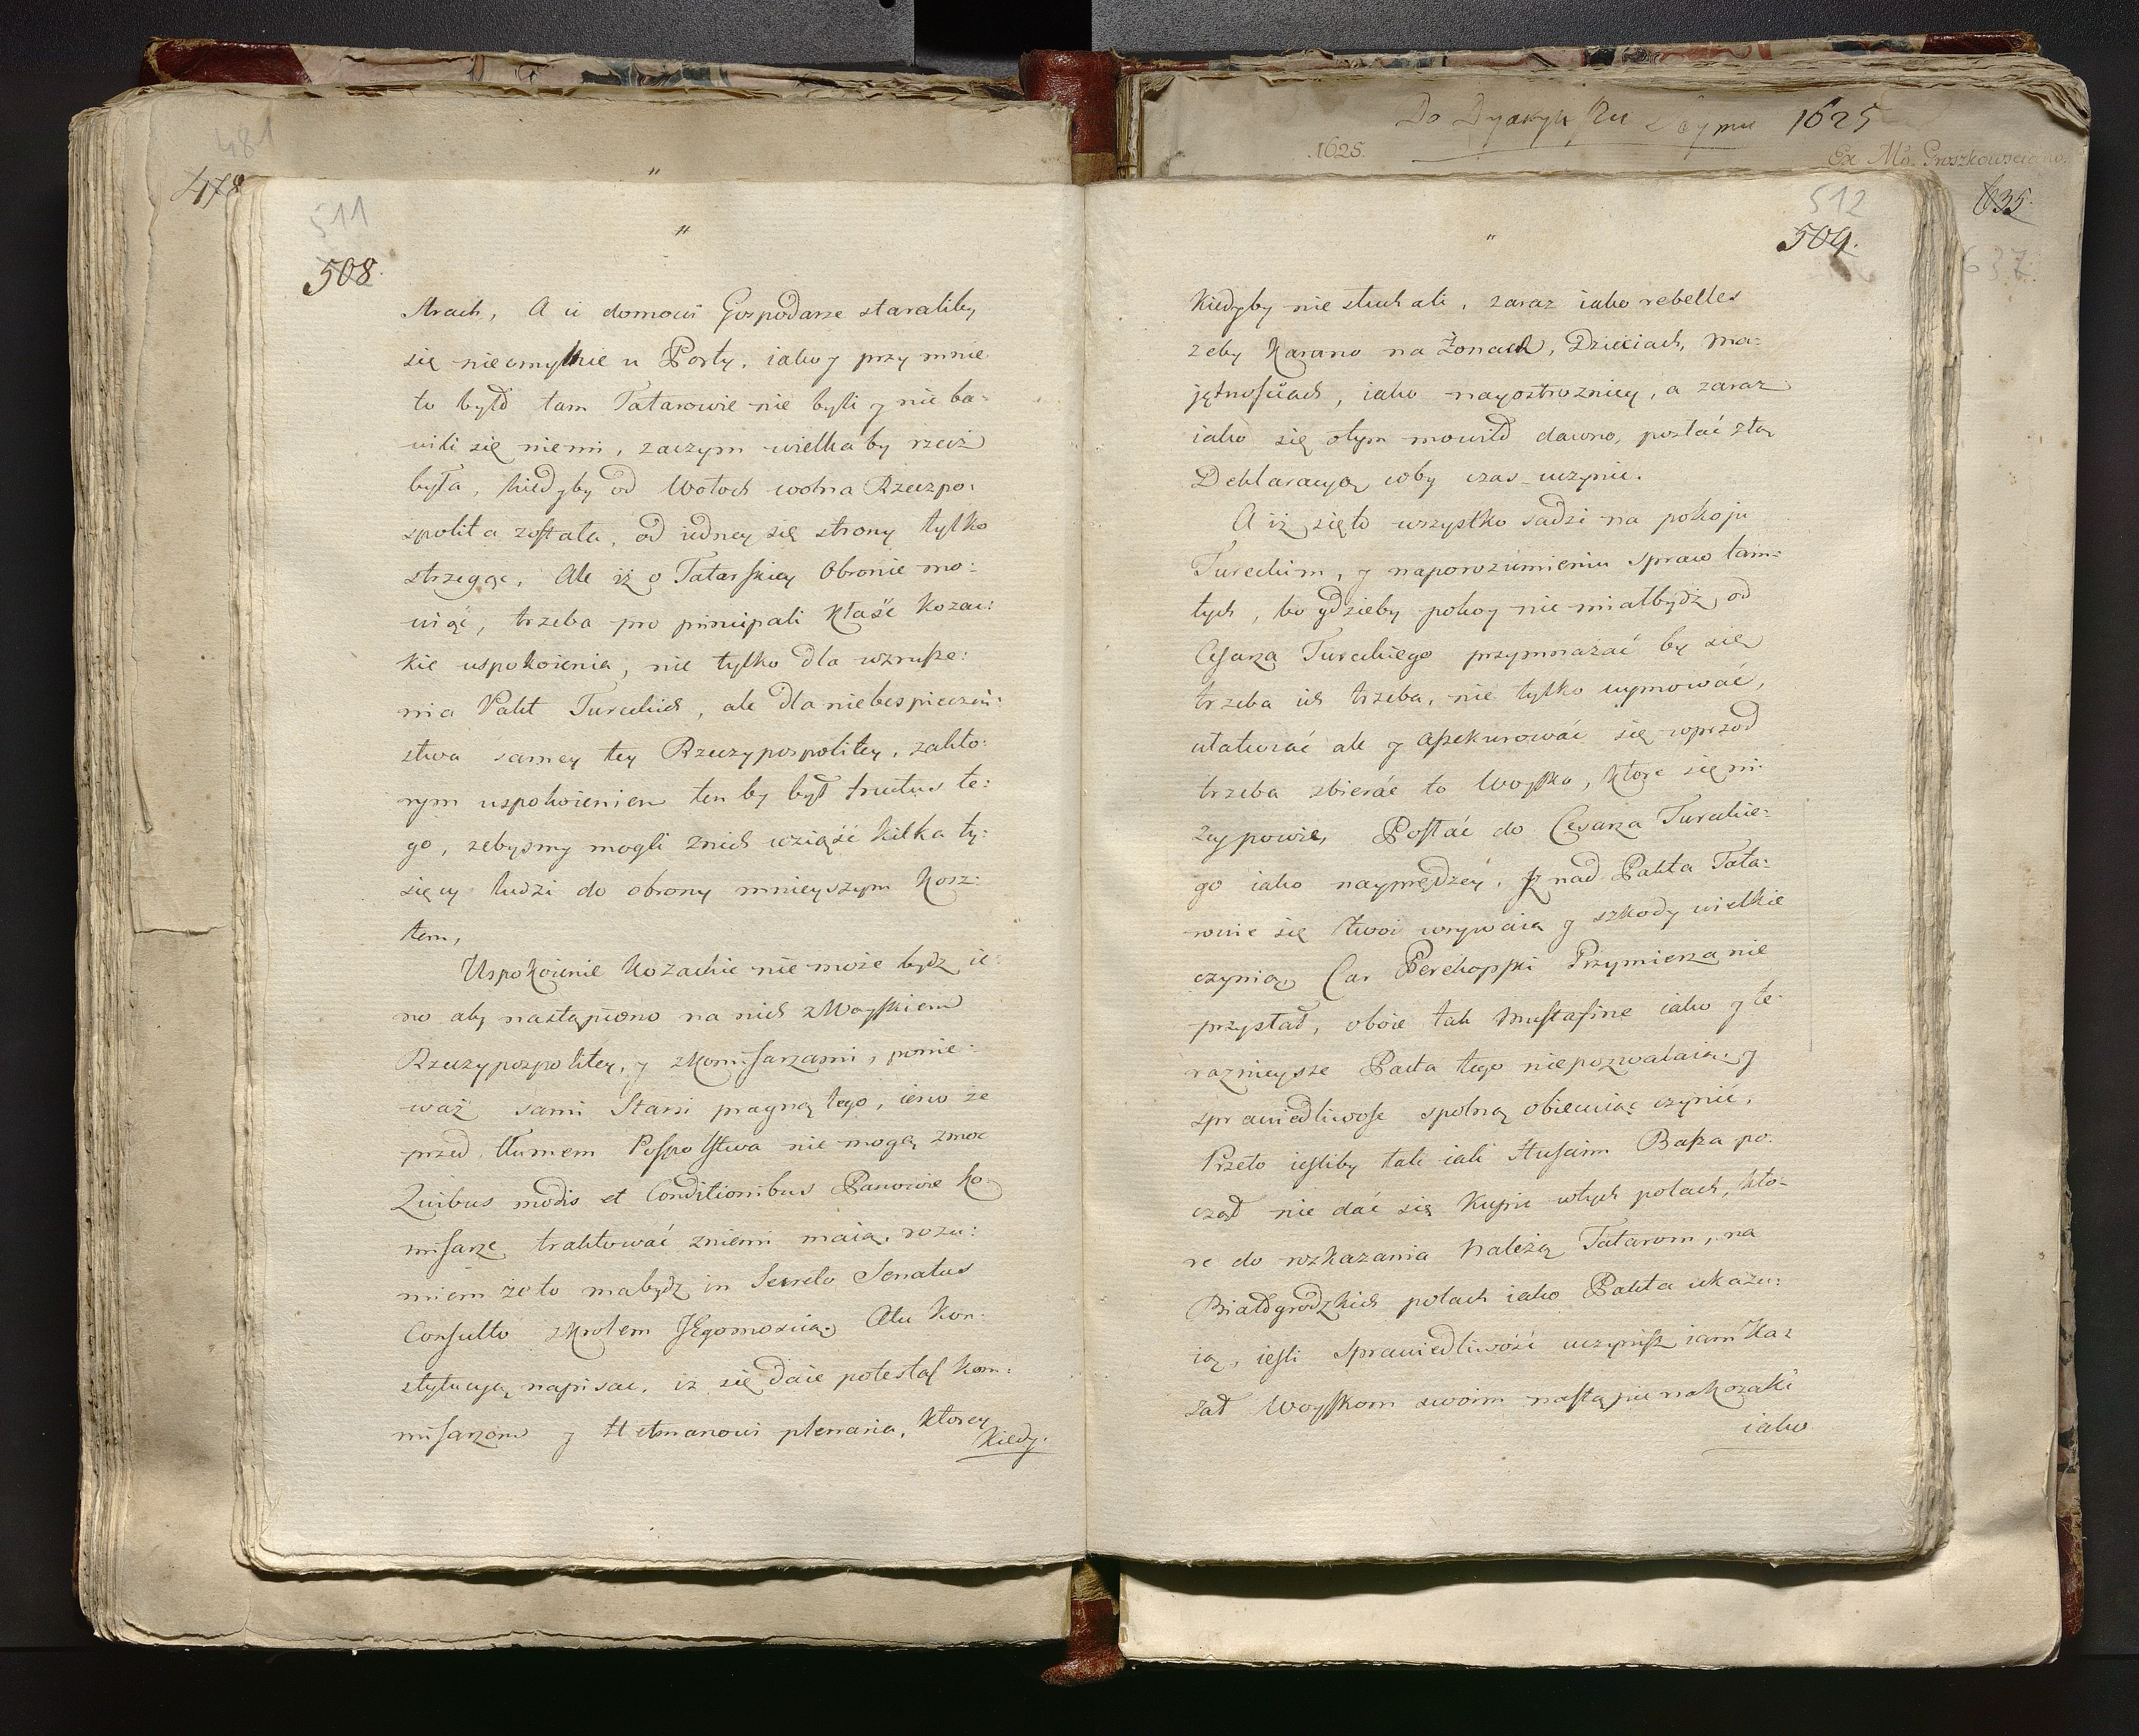 481
478
511
508.
"
strach, A ci domowi Gospodarze staraliby
się nieomylnie u Porty, iako y przy mnie
to było tam Tatarowie nie byli y nie ba:
wili się niemi, zaczym wielka by rzecz
była, kiedyby od Wołoch wolna Rzeczpo:
spolita została, od iedney się strony tylko
strzegąc, Ale iż o Tatarskiey Obronie mo:
wiąc, trzeba pro principali kłaść Kozac:
kie uspokoienia, nie tylko dla wzrusze:
nia Pakt Tureckich, ale dla niebespieczeń:
stwa samey tey Rzeczypospolitey, zakto:
rym uspokoieniem ten by był fructus te:
go, zebysmy mogli znich wziąść kilka ty:
sięcy ludzi do obrony mnieyszym kosz:
tem,
Uspokoienie Kozackie nie może bydz ie:
no aby nastąpiono na nich z Woyskiem
Rzeczypospolitey, y z Komisarzami, ponie:
waż sami Starsi pragną tego, ieno że
przed tłumem Pospolstwa nie mogą zmoc
Quibus modis et Conditionibus Panowie Ko
misarze traktować zniemi maią, rozu:
miem że to ma bydz in Secreto Senatus
Consulto z Krolem JEgomoscią, Atu Kon:
stytucyą napisac, iż się daie potestas kom:
misarzom y Hetmanowi plenaria, ktorey
Kiedy.
Do Dyaryuszu Seymu 1625
1625.
Ex Ms. Proszkowsciano.
635.
637.
512
509.
"
Kiedyby nie słuchali, zaraz iako rebelles
zeby Karano na Żonach, Dzieciach, Ma:
jętnościach, iako nayostrozniey, a zaraz
iako się otym mowiło dawno, posłać ztą
Deklaracyą coby czas uczynic.
A iż się to wszystko sadzi na pokoju
Tureckim, y naporozumieniu spraw tam:
tych, bo gdzieby pokoy nie miał bydź od
Cesarza Tureckiego przymnażać by się
trzeba ich trzeba, nie tylko uymować,
ułatwiać ale y assekurować się wprzod
trzeba zbierać to Woysko, ktore się ni
zey powie, Posłać do Cesarza Tureckie:
go iako nayprędzey, iż nad Pakta Tata:
rowie się twoi wrywaią y szkody wielkie
czynią, Car Perekopski Przymierza nie
przystał, oboie tak Mustafine iako y te:
raznieysze Pacta tego niepozwalaią, y
sprawiedliwosc spolną obiecuią czynić,
Przeto iesliby tak iak Husaim Basza po:
czął nie dać się Kupic wtych polach, kto:
re do rozkazania należą Tatarom, na
Białogrodzkich polach iako Pakta ukazu:
ią, iesli Sprawiedliwość uczynisz iam Ka:
zał Woyskom swoim nastąpic na kozaki
iako